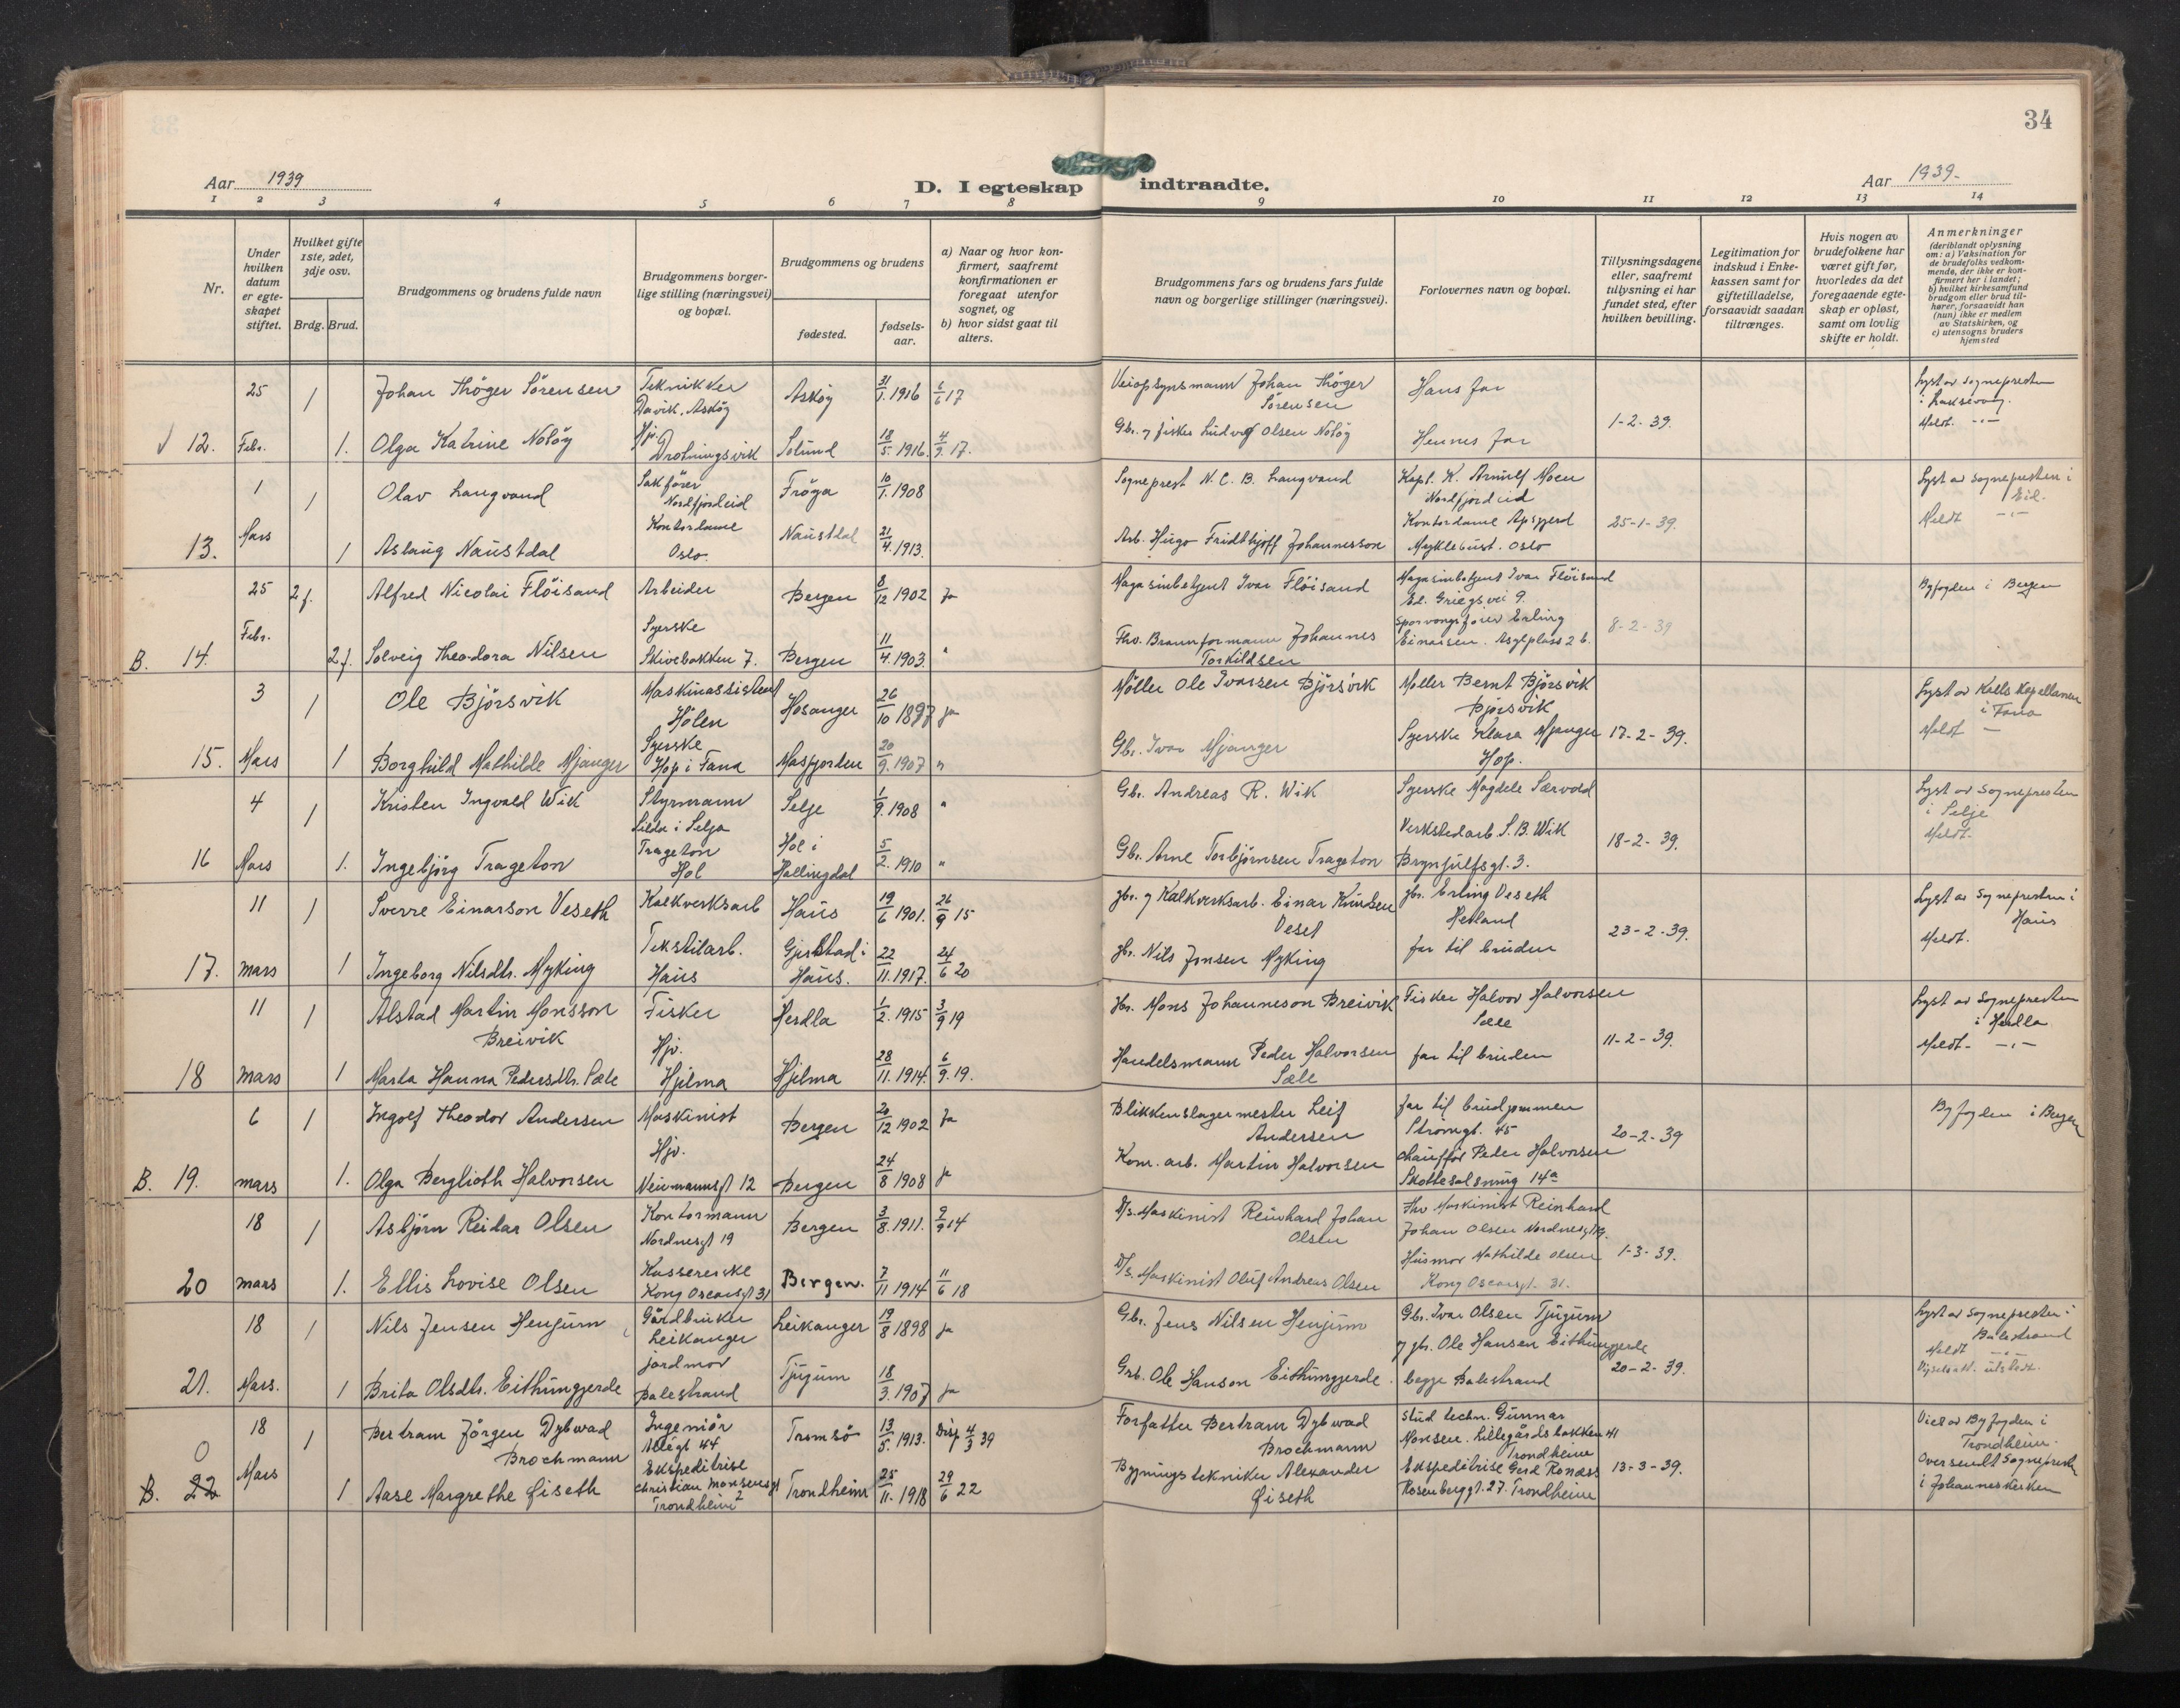 34
Aar 1939
D. I egteskap indtraadte.
Aar 1939.
1 2 3 4 5 6 7 8 9 10 11 12 13 14
Nr.
Under hvilken datum er egteskapet stiftet.
Hvilket gifte 1ste, 2det, 3dje osv.
Brdg. Brud.
Brudgommens og brudens fulde navn
Brudgommens borgerlige stilling (næringsvei) og bopæl.
Brudgommens og brudens
fødested.
fødselsaar.
a) Naar og hvor konfirmert, saafremt konfirmationen er foregaat utenfor sognet, og
b) hvor sidst gaat til alters.
Brudgommens fars og brudens fars fulde navn og borgerlige stillinger (næringsvei).
Forlovernes navn og bopæl.
Tillysningsdagene eller, saafremt tillysning ei har fundet sted, efter hvilken bevilling.
Legitimation for indskud i Enkekassen samt for giftetilladelse, forsaavidt saadan tiltrænges.
Hvis nogen av brudefolkene har været gift før, hvorledes da det foregaaende egteskap er opløst, samt om lovlig skifte er holdt.
Anmerkninger
(deriblandt oplysning om: a) Vaksination for de brudefolks vedkommende, der ikke er konfirmert her i landet; b) hvilket kirkesamfund brudgom eller brud tilhører, forsaavidt han (hun) ikke er medlem av Statskirken, og c) utensogns bruders hjemsted
25 1 Johan Thöger Sörensen Tekniker Davik, Asköy Asköy 31/1. 1916 6/6 17 Veiopsynsmann Johan Thöger Sörensen Hans far Lyst av sognepresten i Laksevåg.
√ 12. Febr. 1. Olga Katrine Notöy Hjv. Drotningsvik Solund 18/5. 1916. 4/9. 17. Gbr. og fisker Ludvig Olsen Notöy Hennes far 1-2-39. Meldt. -"-
1 1 Olav Langvand Sakförer Nordfjordeid Fröya 10/1. 1908 Sogneprest N. C. B. Langvand Kapt. K. Arnulf Moen Nordfjordeid Lyst av sognepresten i Eid.
13. Mars 1 Aslaug Naustdal Kontordame Oslo. Naustdal 21/4. 1913. Arb. Hugo Fridthjoff Johannesson Kontordame Myklebust. Oslo 25-1-39. Meldt -"-
25 2 f. Alfred Nicolai Flöisand Arbeider Bergen 8/12 1902 ja Magasinbetjent Ivar Flöisand Magasinbetjent Ivar Flöisand Ed. Griegs vei 9. Byfogden i Bergen
B. 14. Febr. 2 f. Solveig Theodora Nilsen Syerske Skivebakken 7. Bergen 11/4. 1903. " Fhv. Brannformann Johannes Torkildsen Sporvognsförer Erling Einarsen. Asylplass 2 b. 8-2-39
3 1 Ole Bjørsvik Maskinassistent Hølen Hosanger 26/10 1897 ja Møller Ole Ivarsen Bjørsvik Møller Bernt Bjørsvik Bjørsvik Lyst av Kalls Kapellanen i Fana
15. Mars 1 Borghild Mathilde Mjanger Syerske Hop i Fana Masfjorden 20/9. 1907 " Gbr. Ivar Mjanger Syerske Klara Mjanger Hop. 17-2-39. Meldt -
4 1 Kristen Ingvald Wik Styrmann Silda i Selja Selje 1/9. 1908 " Gbr. Andreas R. Wik Syerske Magdele Særvold Lyst av Sognepresten i Selje
16 Mars 1. Ingebjörg Trageton Trageton Hol Hol i Hallingdal 5/2. 1910 " Gbr. Arne Torbjörnsen Trageton Verkstedarb. S. B. Wik Brynjulfsgt. 3. 18-2-39. Meldt.
11 1 Sverre Einarson Veseth Kalkverksarb Haus 19/6 1901. 26/9 15 gbr. og Kalkverksarb. Einar Knutsen Veset gbr. Erling Veseth Hetland Lyst av Sognepresten i Haus
17. mars 1 Ingeborg Nilsdtr. Myking Tekstilarb. Haus Gjerstad i Haus. 22/11. 1917. 24/6 20 gbr. Nils Jonsen Myking far til bruden 23-2-39. Meldt.
11 1 Alstad Martin Monsson Breivik Fisker Herdla 1/2. 1915 3/9 19 gbr. Mons Johanneson Breivik Fisker Halvor Halvorsen Sæle Lyst av Sognepresten i Herdla
18 mars 1 Marta Hanna Pedersdtr. Sæle Hjv. Hjelma Hjelma 28/11. 1914. 6/9. 19. Handelsmann Peder Halvorsen Sæle far til bruden 11-2-39. Meldt -"-
6 1 Ingolf Theodor Andersen Maskinist Bergen 20/12 1902 ja Blikkenslagermester Leif Andersen far til brudgommen Strömgt. 45 Byfogden i Bergen
B. 19. mars 1. Olga Berglioth Halvorsen Hjv. Neumannsgt 12 Bergen 24/8 1908 ja Kom. arb. Martin Halvorsen Chaufför Peder Halvorsen Skottesalsmug 14a 20-2-39
18 1 Asbjörn Reidar Olsen Kontormann Nordnesgt 19 Bergen 3/8. 1911. 9/9 14 D/s. Maskinist Reinhard Johan Olsen Fhv Maskinist Reinhard Johan Olsen Nordnesgt 19.
20 mars 1. Ellis Lovise Olsen Kassererske Kong Oscarsgt 31 Bergen. 7/11 1914 11/6 18 D/s. Maskinist Oluf Andreas Olsen Husmor Mathilde Olsen Kong Oscarsgt. 31. 1-3-39.
18 1 Nils Jensen Henjum Gårdbruker Leikanger Leikanger 19/8 1898 ja Gbr. Jens Nilsen Henjum Gbr. Ivar Olsen Tjugum og gbr. Ole Hansen Eithungjerde Lyst av sognepresten i Balestrand
21. Mars. 1 Brita Olsdtr. Eithungjerde jordmor Balestrand Tjugum 18/3. 1907 ja Grb. Ole Hanson Eithungjerde begge Balestrand 20-2-39. Meldt -"- Vigselsatt. utstedt.
18 1 Bertram Jörgen Dybwad Brochmann Ingeniör Allégt 44 Tromsö 13/5. 1913. Disp 4/3 39 Forfatter Bertram Dybwad Brochmann Stud techn. Gunnar Monsen. Lillegårdsbakken 41 Trondheim Viet av Byfogden i Trondheim.
B. 22 Mars 1 Aase Margrethe Fiseth Ekspeditrise Christian Monsensgt 2 Trondheim Trondheim 25/11. 1918 29/6 22 Bygningstekniker Alexander Fiseth Ekspeditrise Gerd Ronæss Rosenborggt. 27. Trondheim 13-3-39. Oversendt Sognepresten i Johanneskirken